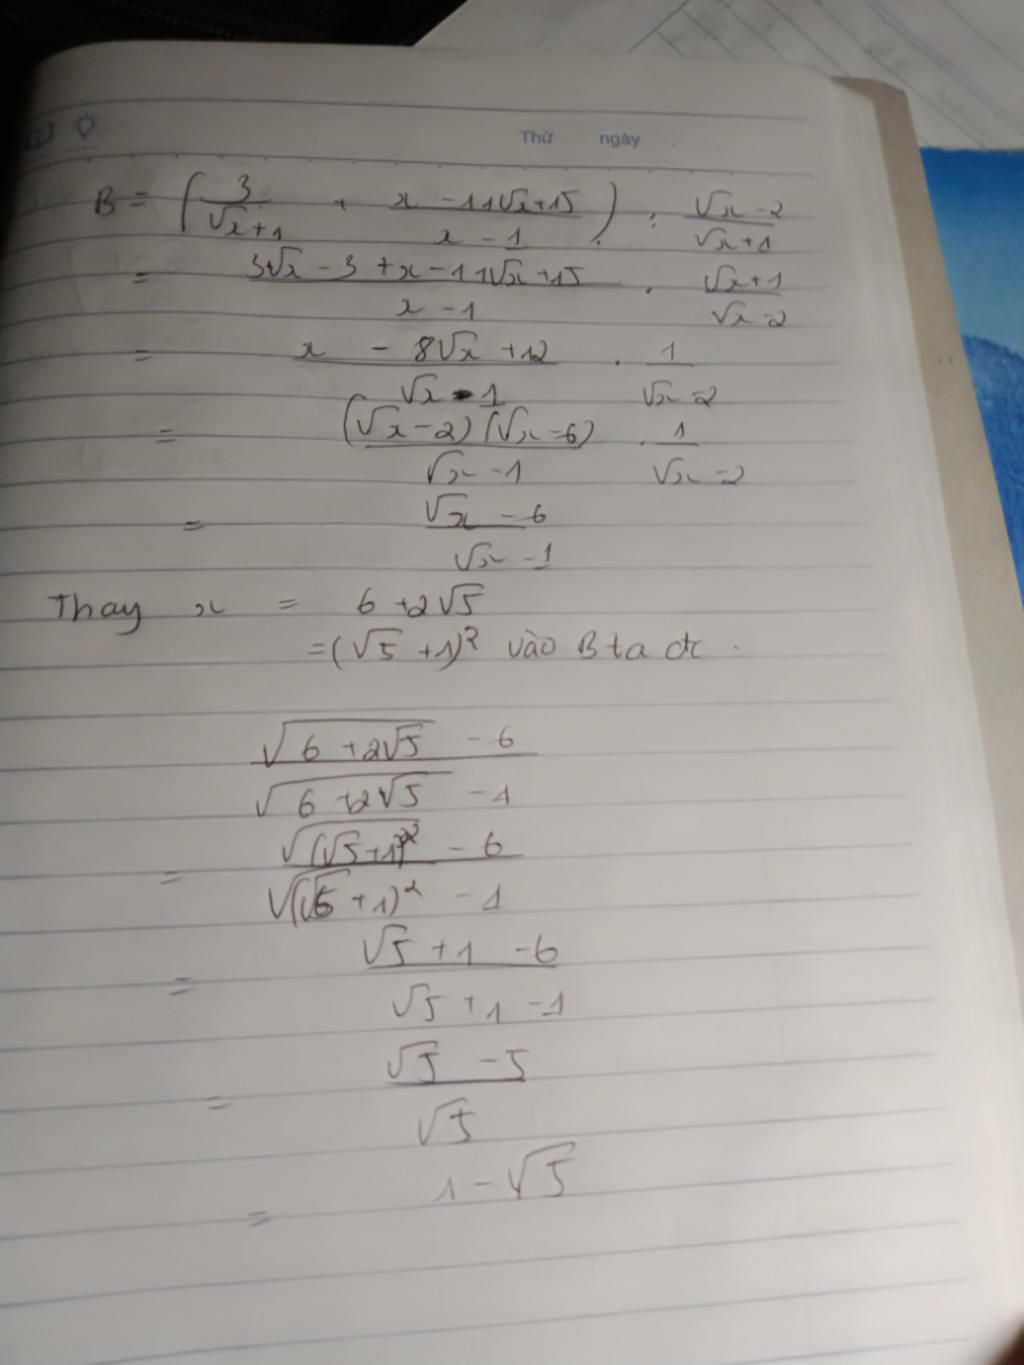 Thứ ngày
B = (3/(√x+1) + (x - 11√x + 15)/(x - 1)) : (√x - 2)/(√x + 1)
= (3√x - 3 + x - 11√x + 15)/(x - 1) . (√x + 1)/(√x - 2)
= (x - 8√x + 12)/(√x - 1) . 1/(√x - 2)
= (√x - 2)(√x - 6)/(√x - 1) . 1/(√x - 2)
= (√x - 6)/(√x - 1)
Thay x = 6 + 2√5
= (√5 + 1)² vào B ta đc
(√(6 + 2√5) - 6)/(√(6 + 2√5) - 1)
= (√((√5 + 1)²) - 6)/(√((√5 + 1)²) - 1)
= (√5 + 1 - 6)/(√5 + 1 - 1)
= (√5 - 5)/√5
= 1 - √5